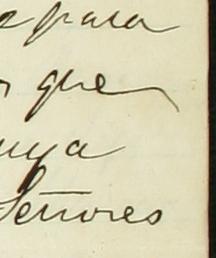 para
que
uya
Señores